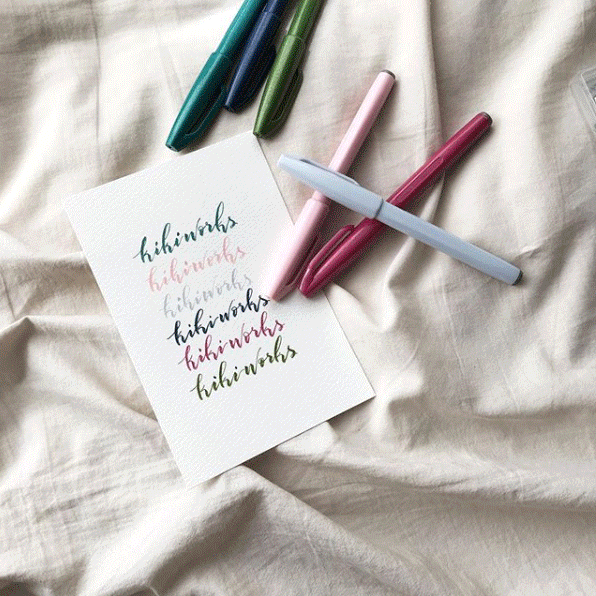 kikiworks
kikiworks
kikiworks
kikiworks
kikiworks
kikiworks